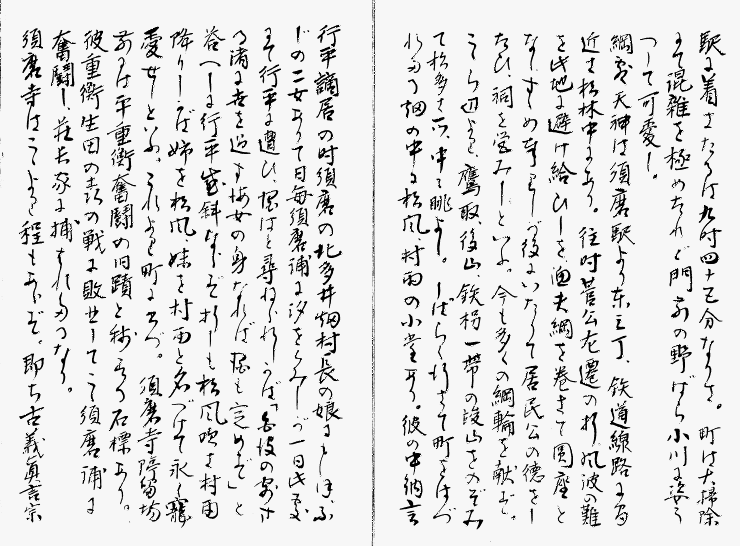 駅に着きたるは九時四十五分なりき。町は大掃除
にて混雑を極めたれど門前の野ばら小川に姿う
つして可憂し。
綱敷天神は須磨駅より東三丁、鉄道線路に
近き松林中にあり。往時菅公左遷の折、風波の難
を此地に避け給ひしを漁夫綱を巻きて圓座と
なしすゝめ奉りしが後にいたりて居民公の德をし
たひ、祠を営みしといふ。今も多くの綱輪を献ず。
こら辺より、鷹取、後山、鉄拐一帯の峻山をのぞみ
て松多き所、中々眺よし。しばらく行きて町をはづ
れたる畑の中に松風、村雨の小堂あり。彼の中納言
行平謫居の時須磨の北多井畑村長の娘にしほ、ふ
じの二女ありて日毎須磨浦に汐をくみしが一日此処
にて行平に遭ひ、宿はと尋ねられしかば「白波の寄す
る渚に世を過す海女の身なれば宿も定めで」と
答へしに行平感斜ならずそ折しも松風吹き村雨
降りしかば姉を松風、妹を村雨と名づけて永く寵
愛せしといふ。これより町に出づ。須磨寺停留場
前には平重衡奮闘の旧蹟と称する石標あり。
彼重衡生田の森の戦に敗せしてこゝ須磨浦に
奮闘し荘長家に捕はれたるなり。
須磨寺はこゝより程もあらず。即ち古義真言宗